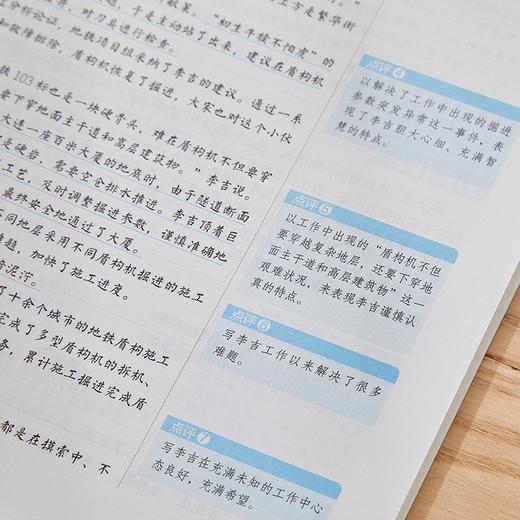 方是繁华街
"初生牛犊不怕虎"的
于是主动站了出来，建议在盾构机
对刀具进行检查。
分析论证，地铁项目组采纳了李吉的建议。通过一系
和故障排除，盾构机恢复了掘进，大家也对这个小伙
铁103标也是一块硬骨头，难在盾构机不但要穿
要下穿地面主干道和高层建筑物。"李吉说。
大连一座百米大厦的地底时，由于隧道断面
是硬岩，需要空仓排水推进。李吉顶着巨
工艺，及时调整掘进参数，谨慎准确地
最终安全地通过了大厦。
不同地层采用不同盾构机掘进的施工
难题，加快了施工进度。
了十余个城市的地铁盾构施工
完成了多型盾构机的拆机、
务，累计施工掘进完成盾
都是在摸索中、不
点评4
以解决了工作中出现的掘进
参数突发异常这一事件，表
现了李吉胆大心细、充满智
慧的特点。
点评5
以工作中出现的"盾构机不但
要穿越复杂地层，还要下穿地
面主干道和高层建筑物"这一
艰难状况，来表现李吉谨慎认
真的特点。
点评6
写李吉工作以来解决了很多
难题。
点评7
写李吉在充满未知的工作中心
态良好，充满希望。